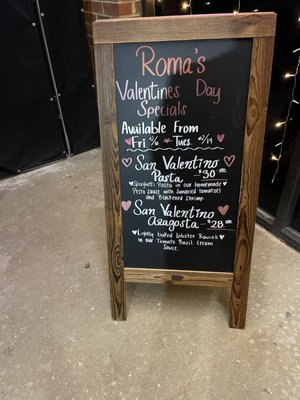 Roma's
Valentines Day
Specials
Available From
Fri 2/10 - Tues. 2/14
San Valentino
Pasta - $30.00
Spaghetti Pasta in our homemade
Pesto Sauce with Sundried tomatoes
and Blackened Shrimp.
San Valentino
Aragosta - $28.00
Lightly baked Lobster Ravioli
in our Tomato Basil Cream
Sauce